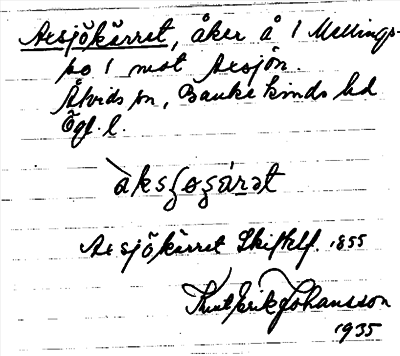 Axsjökärret, åker å 1 Mellings-
bo 1 mot Axsjön.
Åtvids sn, Bankekinds hd
Ögl. l.
Axsjökärret Skifteslf. 1855
Knut Erik Johansson
1935